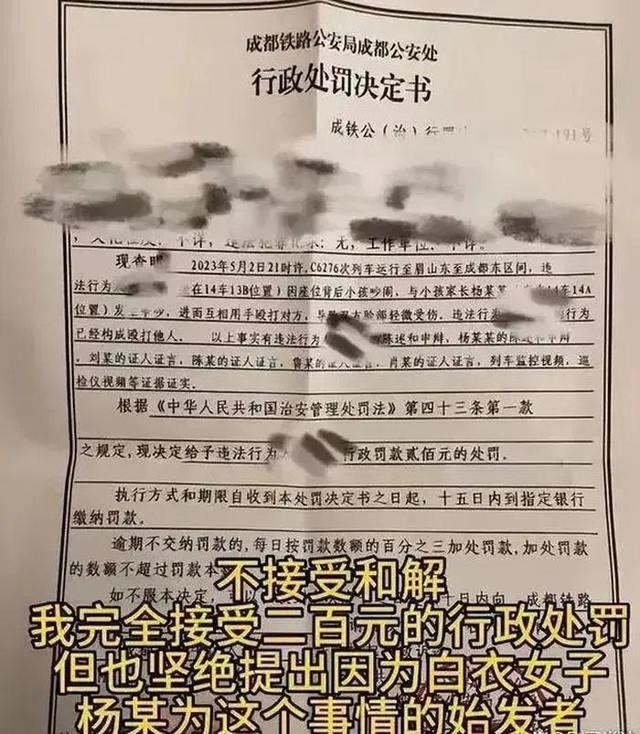 成都铁路公安局成都公安处
行政处罚决定书
成铁公（治）行罚 191号
，文化程度：不详，违法犯罪记录：无，工作单位：不详。
现查明 2023年5月2日21时许，C6276次列车运行至眉山东至成都东区间，违
法行为 在14车13B位置）因座位背后小孩吵闹，与小孩家长杨某某 14车14A
位置）发生争吵，进而互相用手殴打对方，导致双方脸部轻微受伤。违法行为 的行为
已经构成殴打他人。 以上事实有违法行为 陈述和申辩，杨某某的陈述和申辩，
刘某的证人证言，陈某的证人证言，鲁某的证人证言，肖某的证人证言，列车监控视频，巡
检仪视频等证据证实。
根据《中华人民共和国治安管理处罚法》第四十三条第一款
之规定，现决定给予违法行为 行政罚款贰佰元的处罚。
执行方式和期限自收到本处罚决定书之日起，十五日内到指定银行
缴纳罚款。
逾期不交纳罚款的，每日按罚款数额的百分之三加处罚款，加处罚款
的数额不超过罚款本
如不服本决定，可以 日内向 成都铁路
不接受和解
我完全接受二百元的行政处罚
但也坚绝提出因为白衣女子
杨某为这个事情的始发者